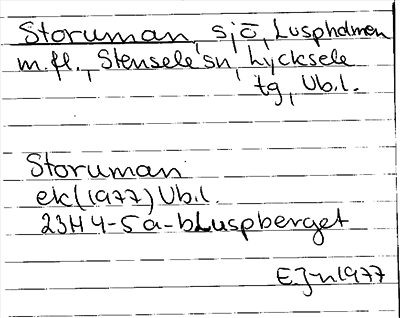 Storuman, sjö, Luspholmen
m.fl., Stensele sn, Lycksele
tg, Vb.l.
Storuman
ek(1977) Vb.l.
23H 4-5 a-b Luspberget
EJn 1977